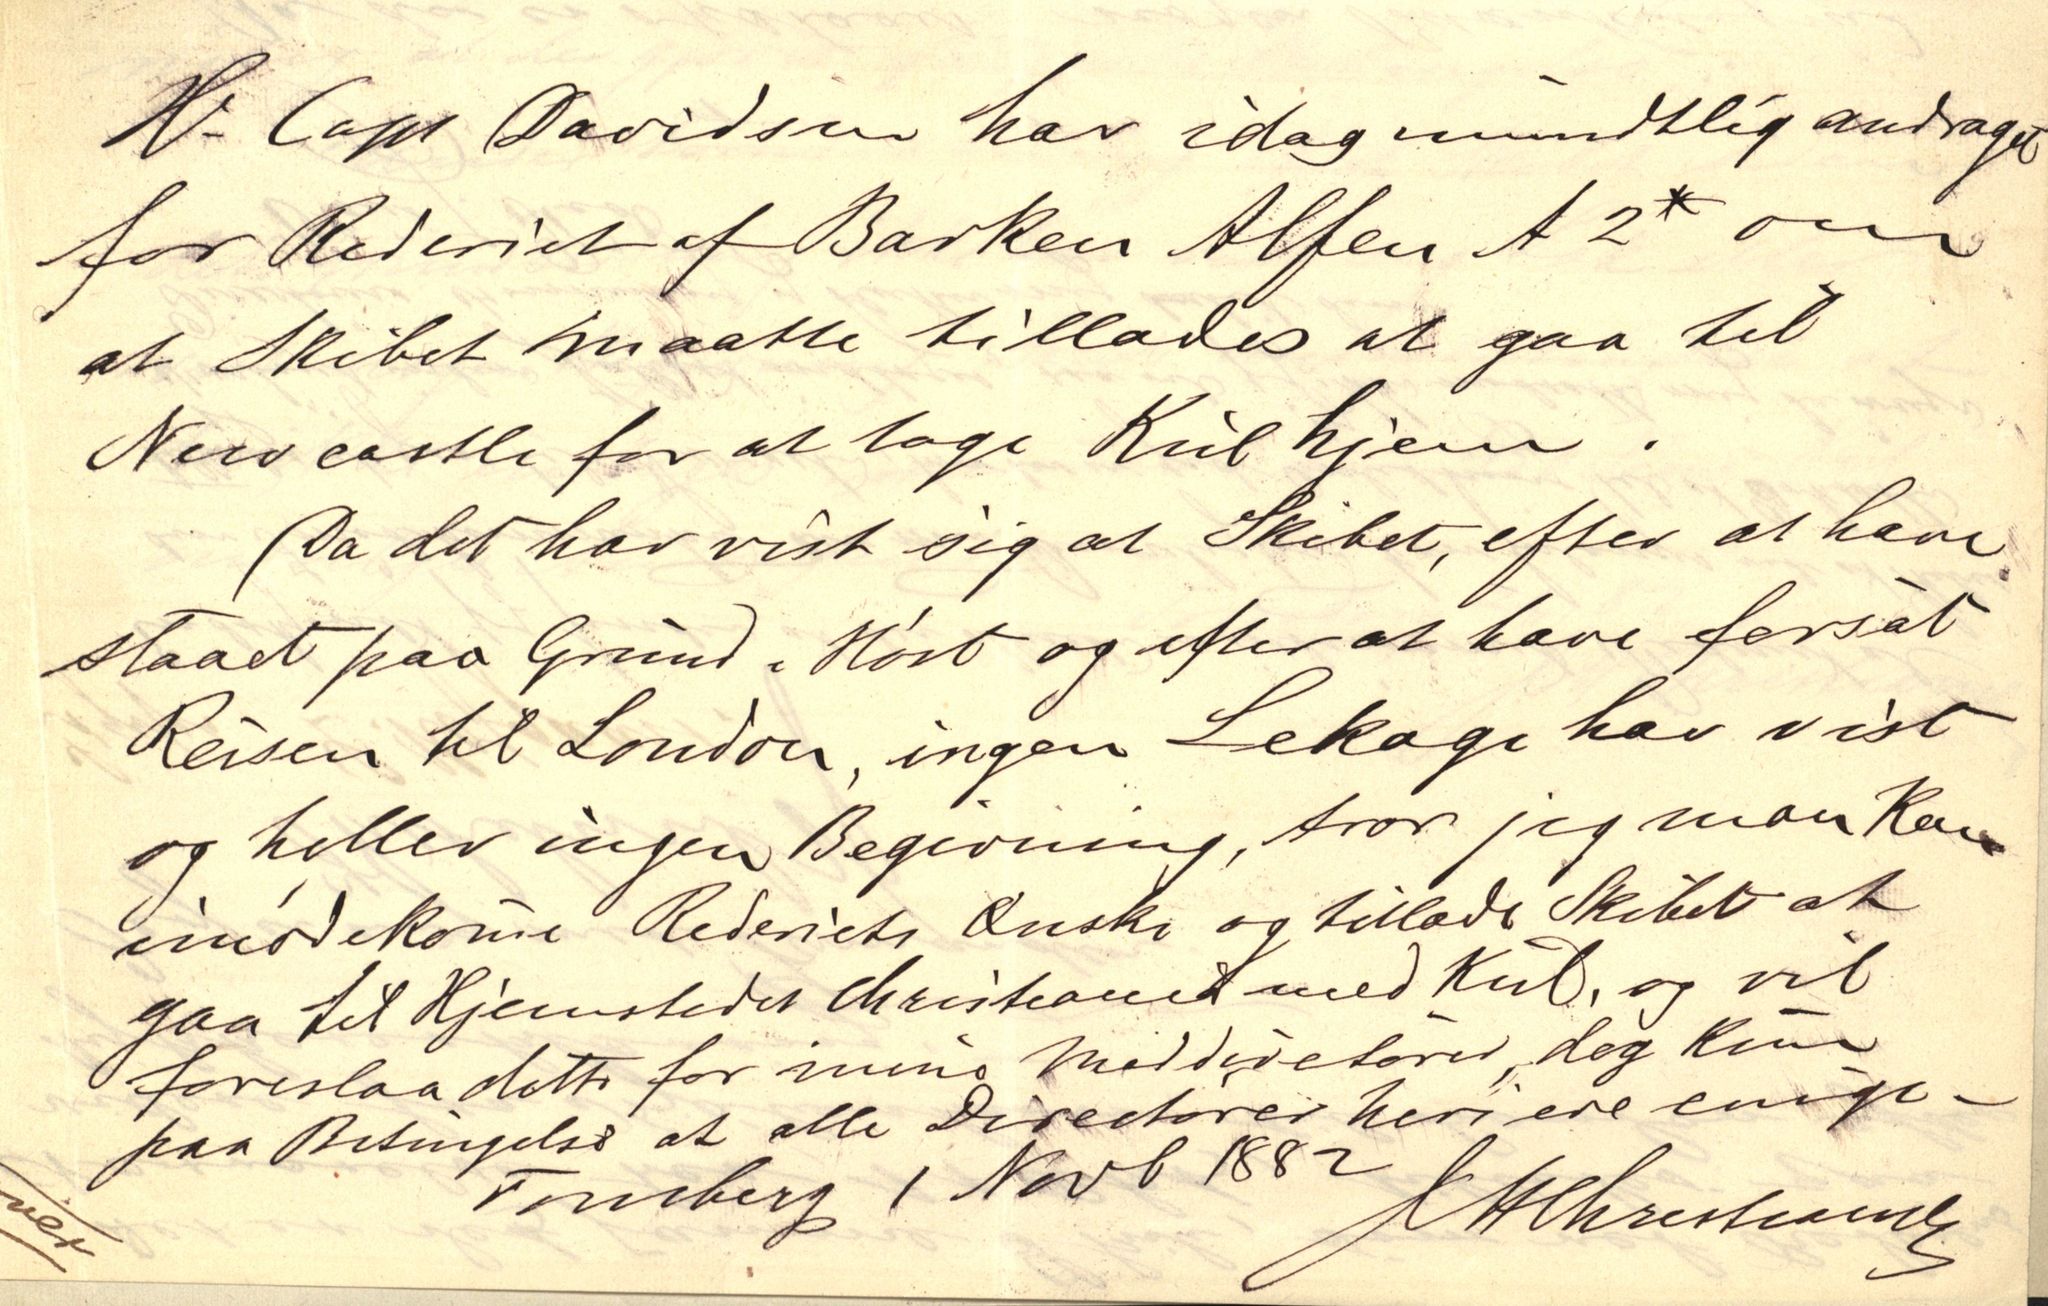 Hr Capt Davidsen har idag mundtlig andraget
for Rederiet af Barken Alfen A 2* om
at Skibet maatte tillades at gaa til
Newcastle for at tage Kul hjem.
Da det har vist sig at Skibet, efter at have
staaet paa Grund i Høst og efter at have forsat
Reisen til London, ingen Lekage har vist
og heller ingen Begivning, tror jeg man kan
imødekom̄e Rederiets Ønske og tillade Skibet at
gaa til Hjemstedet Christiania med Kul, og vil
foreslaa dette for mine Meddirectører, dog kun
paa Betingelse at alle Directører heri ere enige -
Tønsberg 1 Novb 1882
J H Christiansen